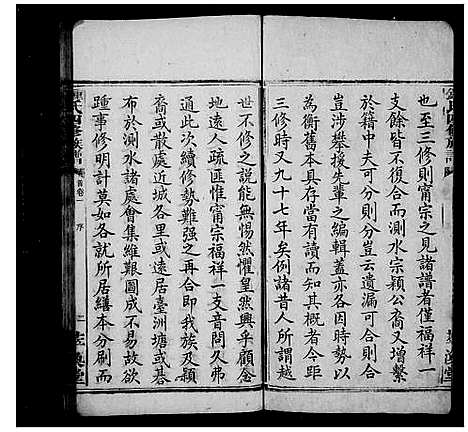 也至三修則甯宗之見諸譜者僅福祥一
支餘皆不復合而測水宗穎公裔又增繫
於籍中夫可分則分豈云遺漏可合則合
豈涉攀援先輩之編輯蓋亦各因時勢以
為衡舊本具存當有讀而知其概者今距
三修時又九十七年矣例諸昔人所謂越
世不修之說能無惕然懼皇然興乎顧念
地遠人疏匪惟甯宗福祥一支音問久弗
通此次續修勢難強之再合即我族及穎
裔或散處近城各里或遠居臺洲塘或碁
布於測水諸處會集維艱圖成不易故欲
踵事修明計莫如各就所居繕本分刷而
氏四修族
卷一
序